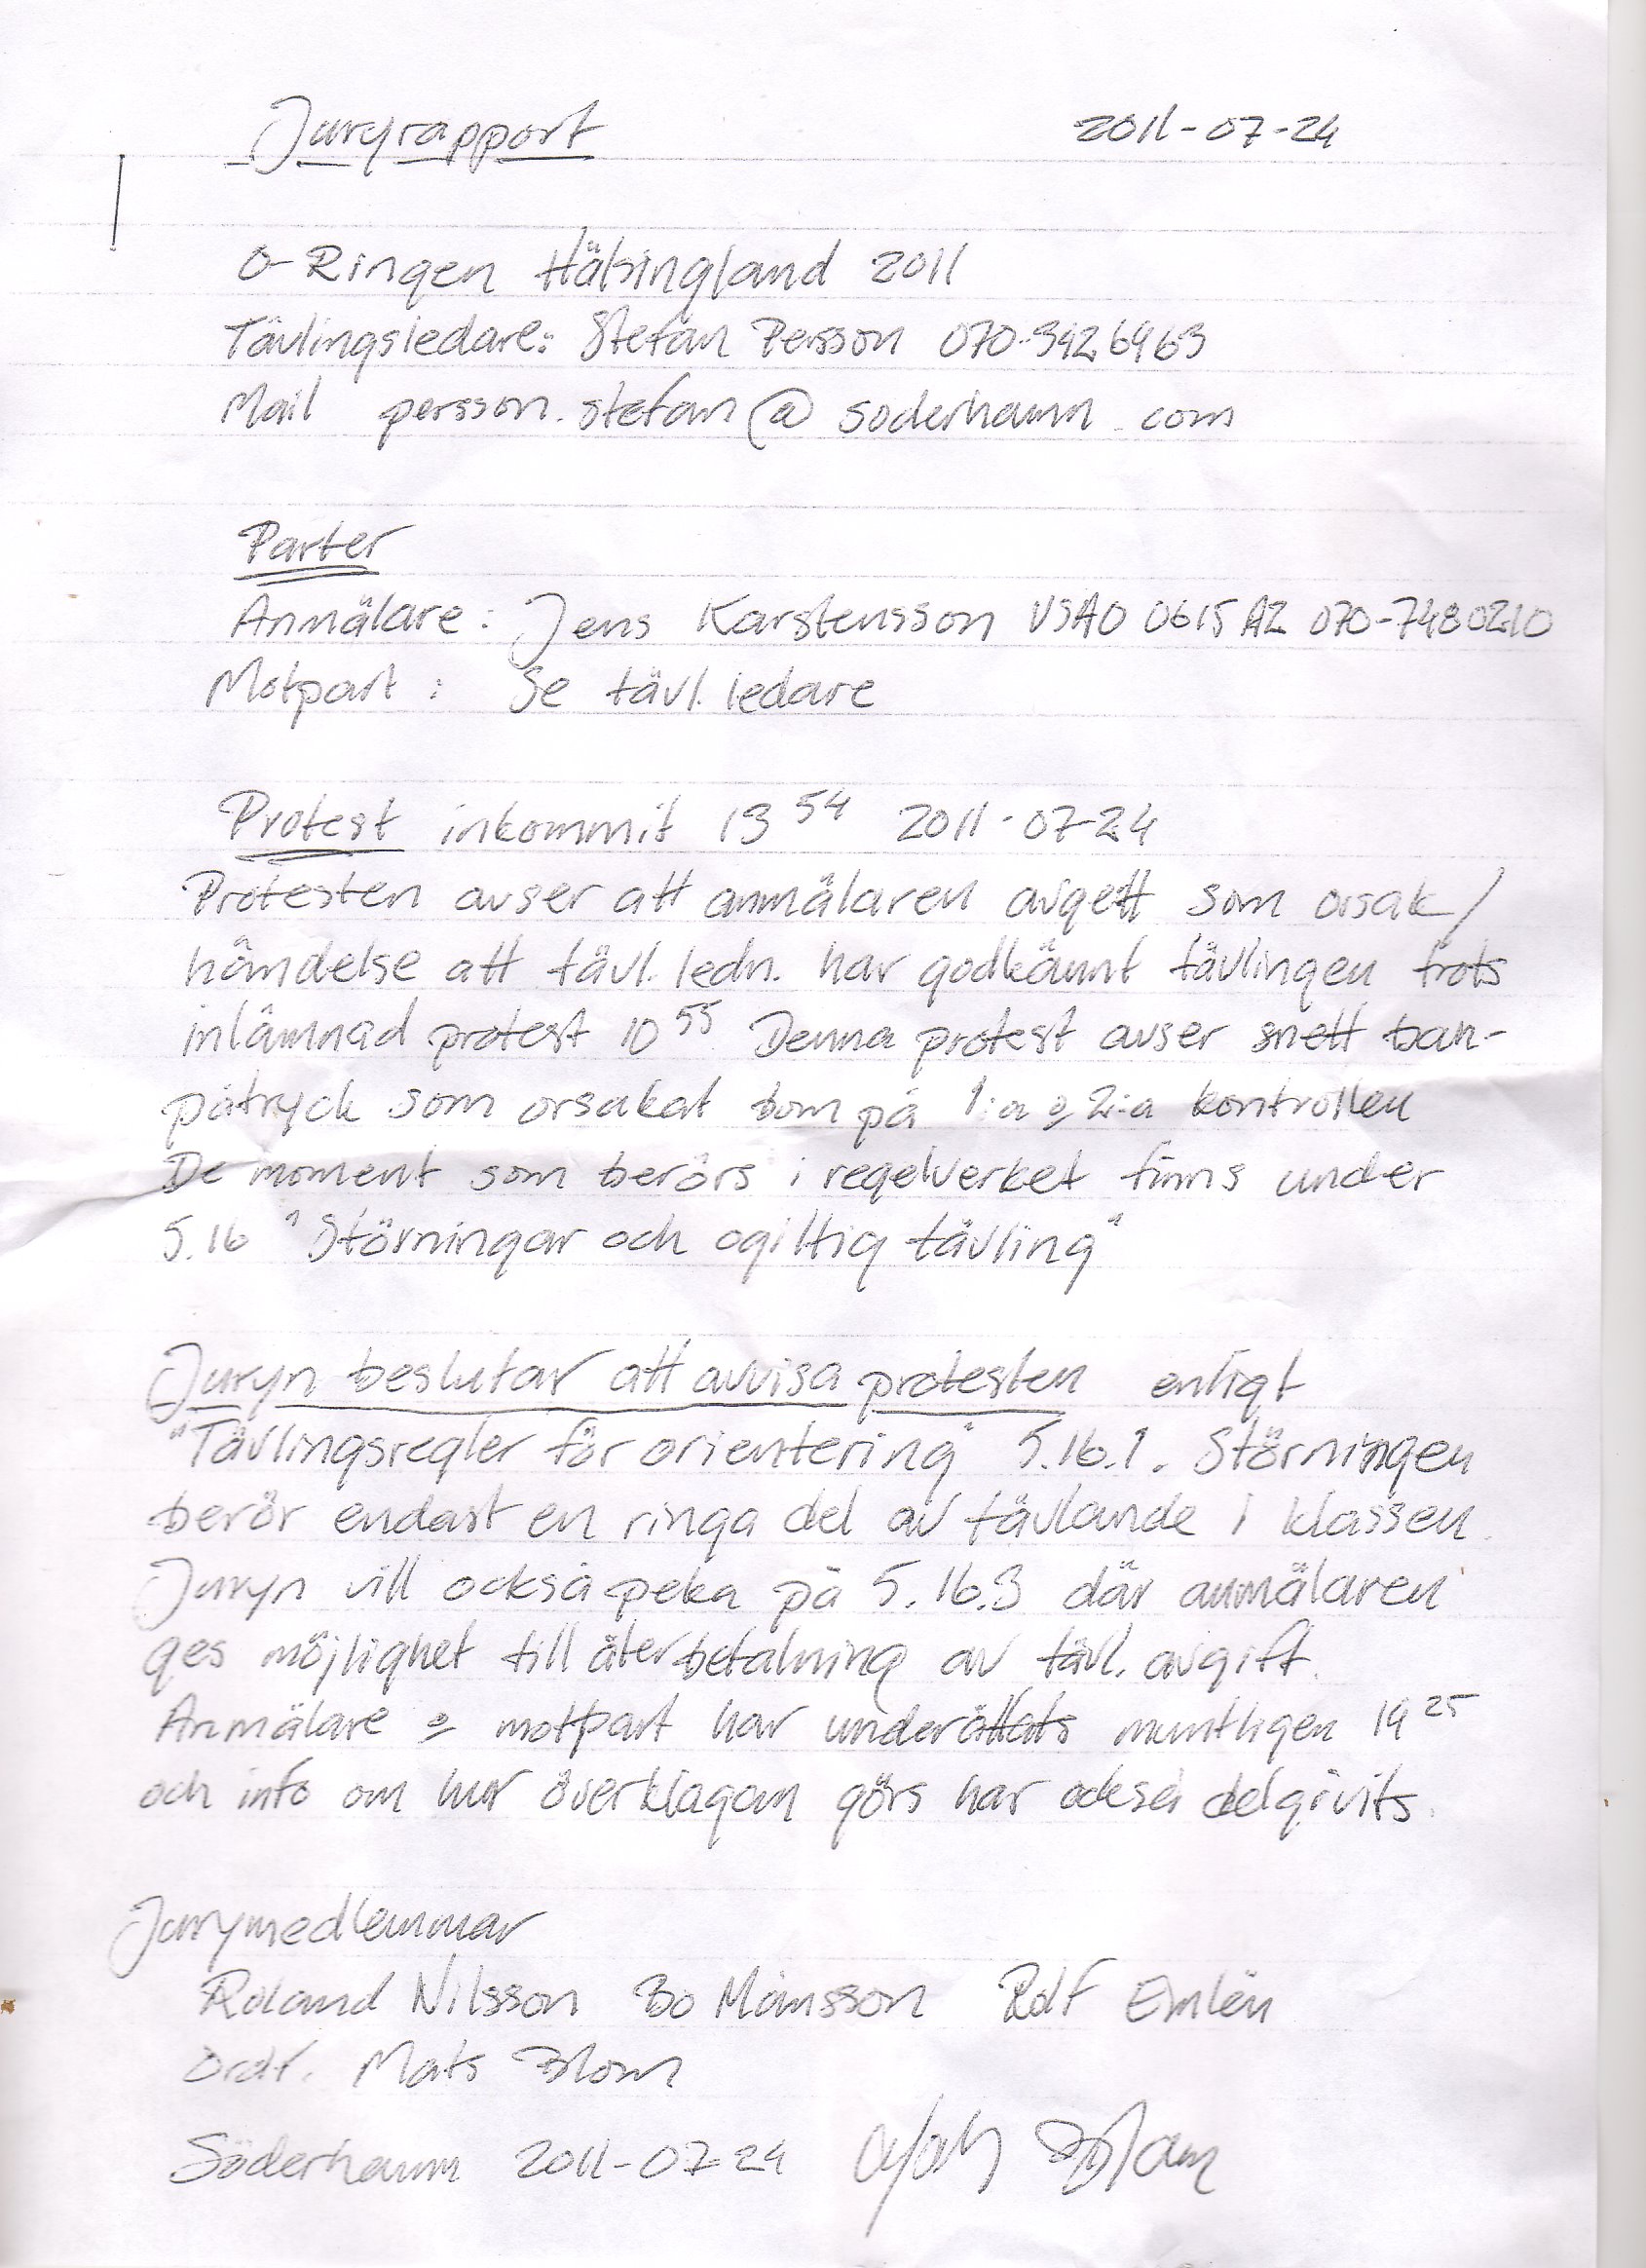 Juryrapport 2011-07-24
O-Ringen Hälsingland 2011
Tävlingsledare: Stefan Persson 070-3426463
Mail persson.stefan@soderhamn.com
Parter
Anmälare: Jens Karstensson USAO 0615 AZ 070-7480210
Motpart: Se tävl. ledare
Protest inkommit 13 54 2011-07-24
Protesten avser att anmälaren avgett som orsak/
händelse att tävl. ledn. har godkännt tävlingen trots
inlämnad protest 10 55 Denna protest avser snett ban-
påtryck som orsakat bom på 1:a & 2:a kontrollen
De moment som berörs i regelverket finns under
5.16 "Störningar och ogiltig tävling"
Juryn beslutar att avvisa protesten enligt
"Tävlingsregler för orientering" 5.16.1. Störningen
berör endast en ringa del av tävlande i klassen.
Juryn vill också peka på 5.16.3 där anmälaren
ges möjlighet till återbetalning av tävl. avgift.
Anmälare & motpart har underättats muntligen 19 25
och info om hur överklagan görs har också delgivits.
Jurymedlemmar
Roland Nilsson Bo Månsson Rolf Emlén
Ordf. Mats Blom
Söderhamn 2011-07-24 Mats Blom